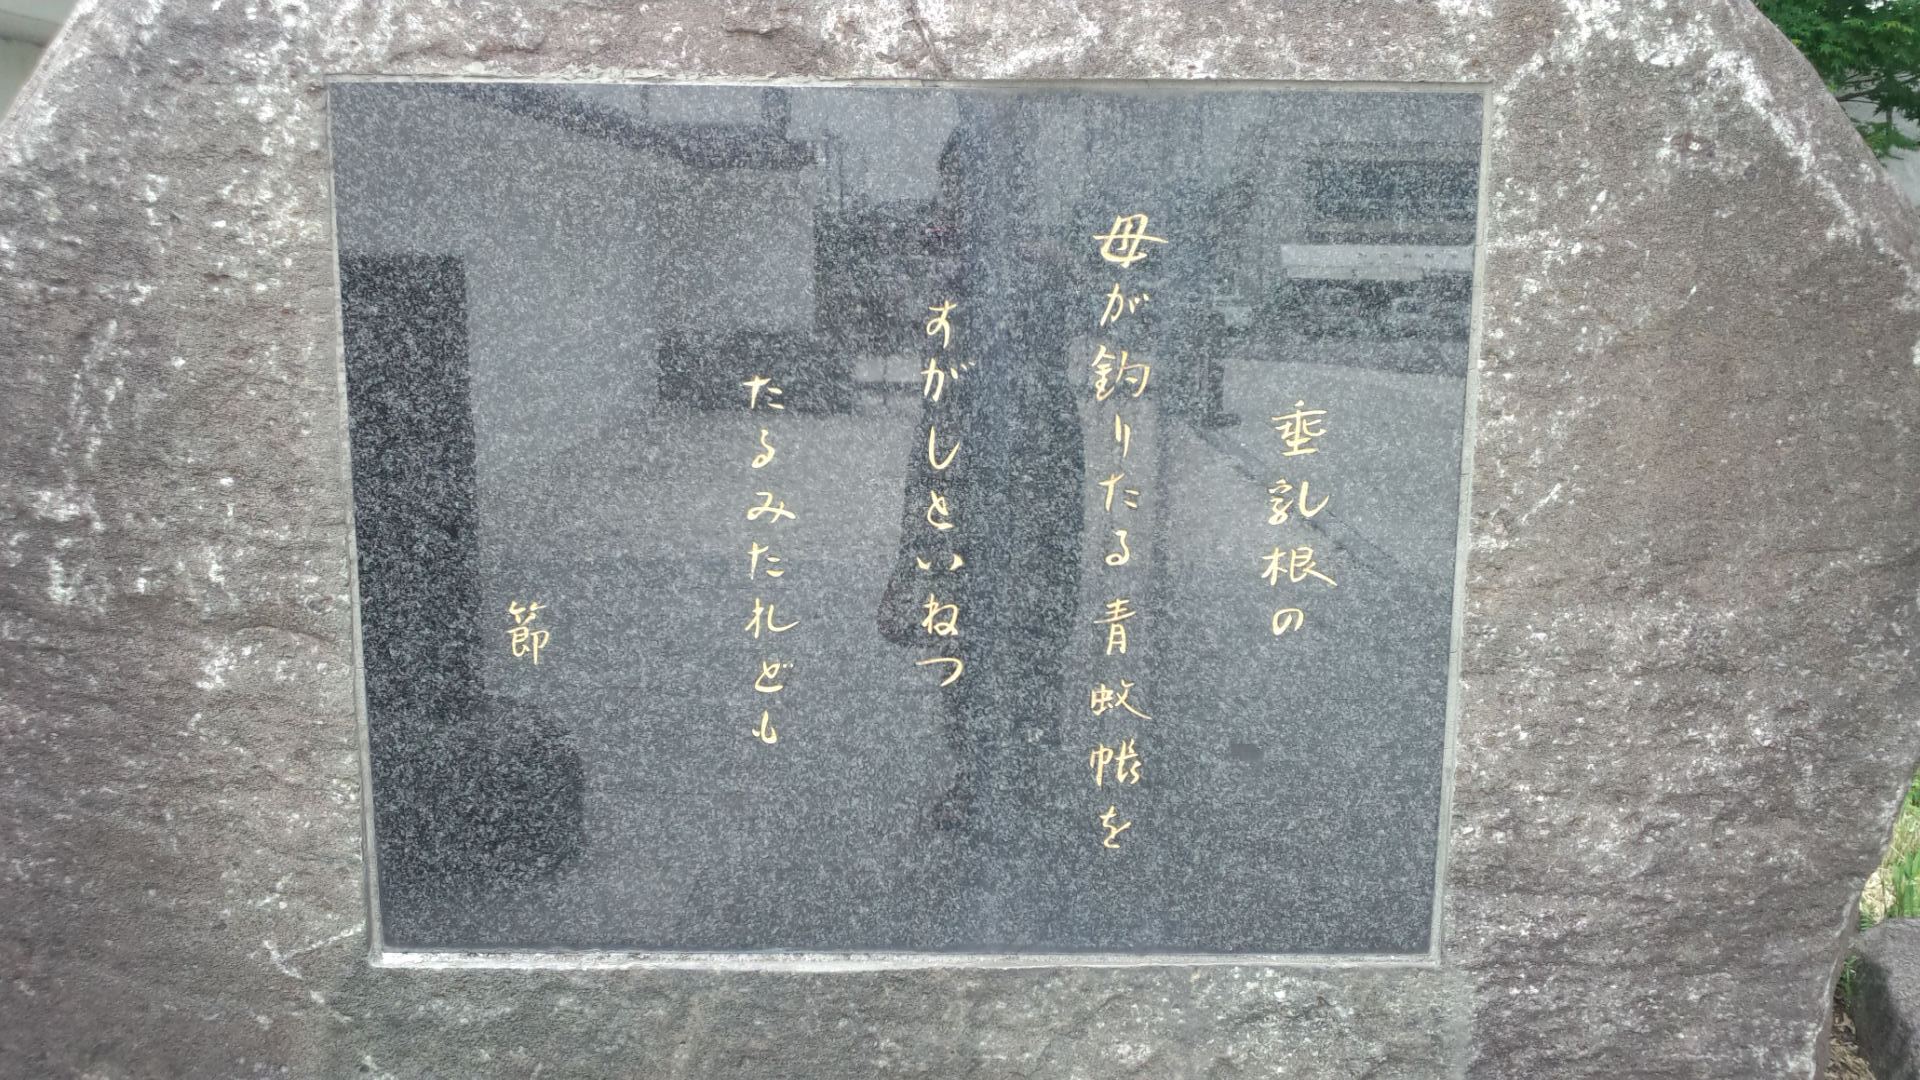 垂乳根の
母が釣りたる青蚊帳を
すがしといねつ
たるみたれども
節